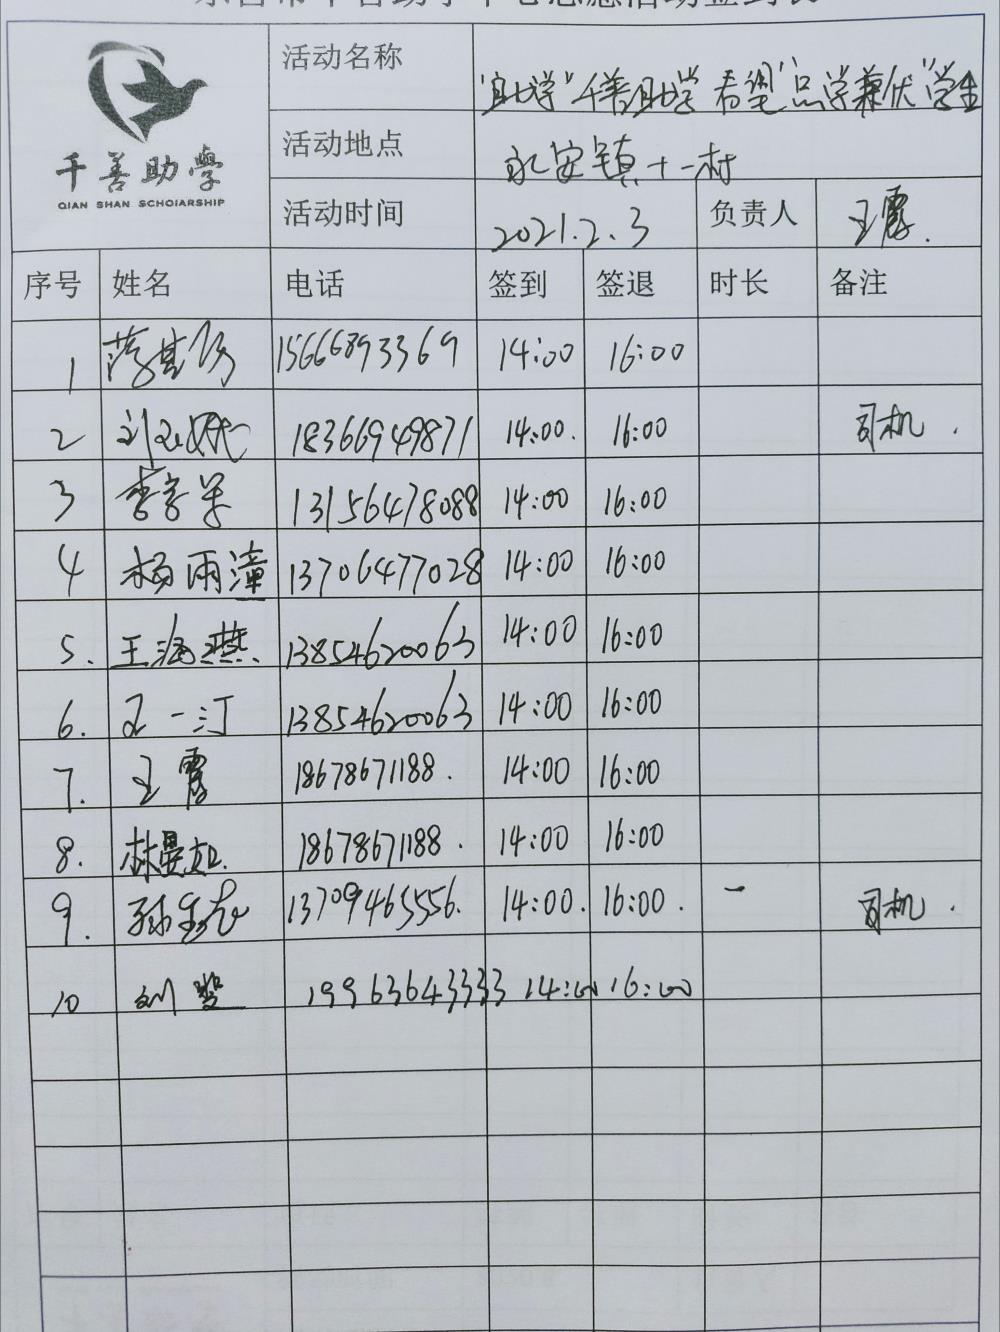 千善助學
QIAN SHAN SCHOlARSHIP
活动名称 "助学"千善助学 希望"品学兼优"学生
活动地点 永安镇十一村
活动时间 2021.2.3 负责人 王霞.
序号 姓名 电话 签到 签退 时长 备注
1 15666893369 14:00 16:00
2 18366949871 14:00. 16:00 司机.
3 13156478088 14:00 16:00
4 杨雨潼 13706477028 14:00 16:00
5. 王海燕 13854620063 14:00 16:00
6. 王一汀 13854620063 14:00 16:00
7. 王霞 18678671188. 14:00 16:00
8. 林曼如. 18678671188. 14:00 16:00
9. 13709465556. 14:00. 16:00. 司机.
10 19963643333 14:00 16:00